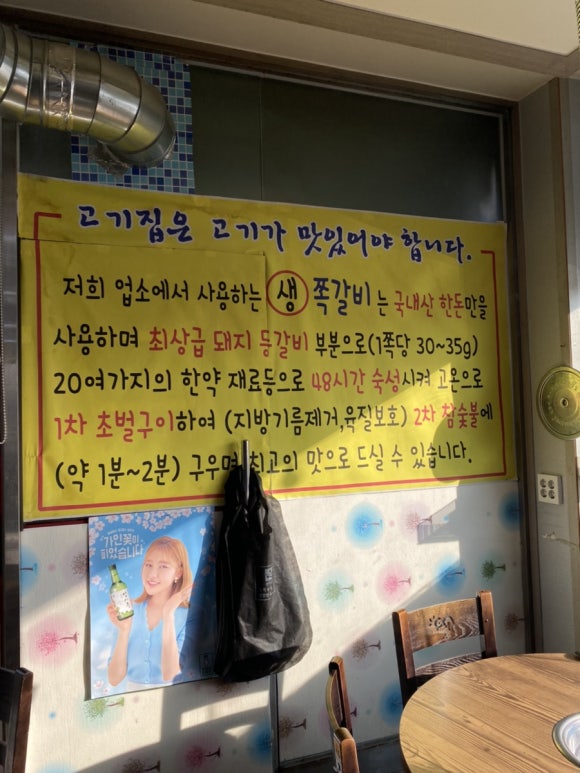 고기집은 고기가 맛있어야 합니다.
저희 업소에서 사용하는 생 쪽갈비는 국내산 한돈만을
사용하며 최상급 돼지 등갈비 부분으로(1쪽당 30~35g)
20여가지의 한약 재료등으로 48시간 숙성시켜 고온으로
1차 초벌구이하여 (지방기름제거,육질보호) 2차 참숯불에
(약 1분~2분) 구우며 최고의 맛으로 드실 수 있습니다.
가인꽃이
피었습니다